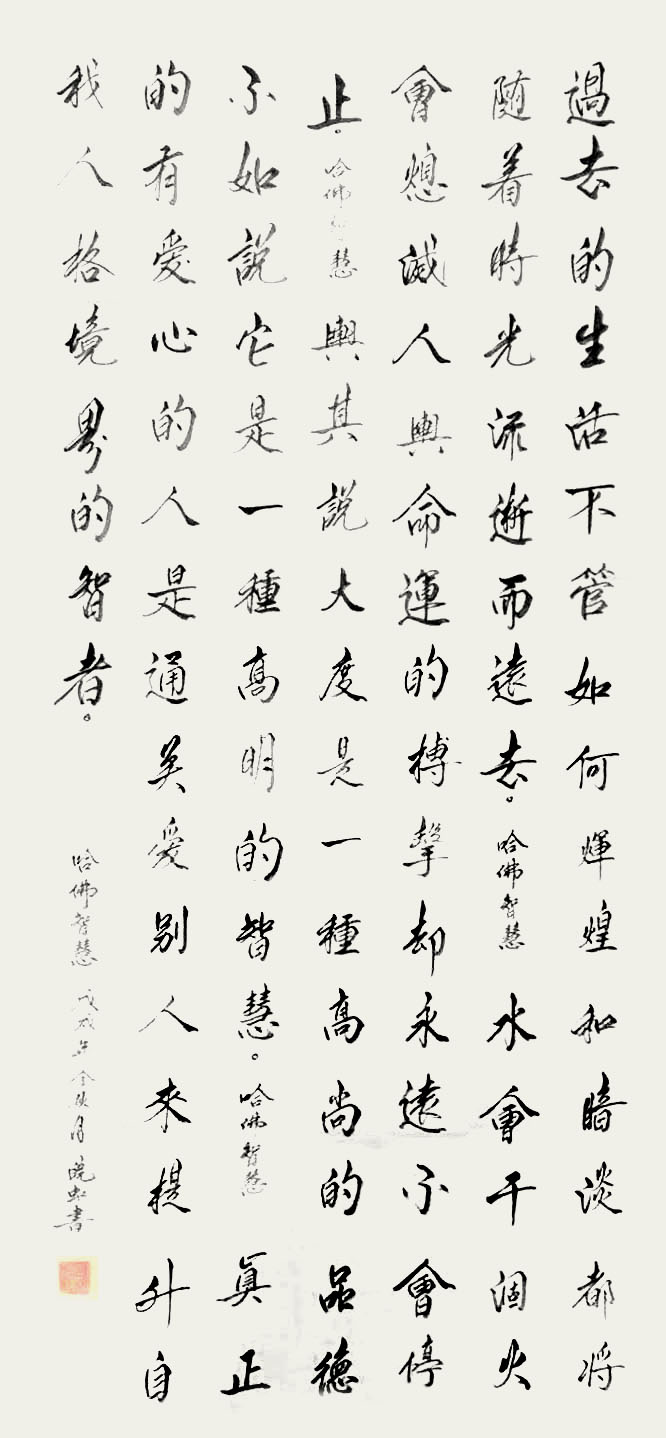 過去的生活不管如何輝煌和暗淡都将
随着時光流逝而遠去。哈佛智慧 水會干涸火
會熄滅人與命運的搏擊却永遠不會停
止。哈佛智慧 與其說大度是一種高尚的品德
不如說它是一種高明的智慧。哈佛智慧 眞正
的有愛心的人是通关愛别人來提升自
我人格境界的智者。
哈佛智慧 戊戌年金秋月 曉虹書